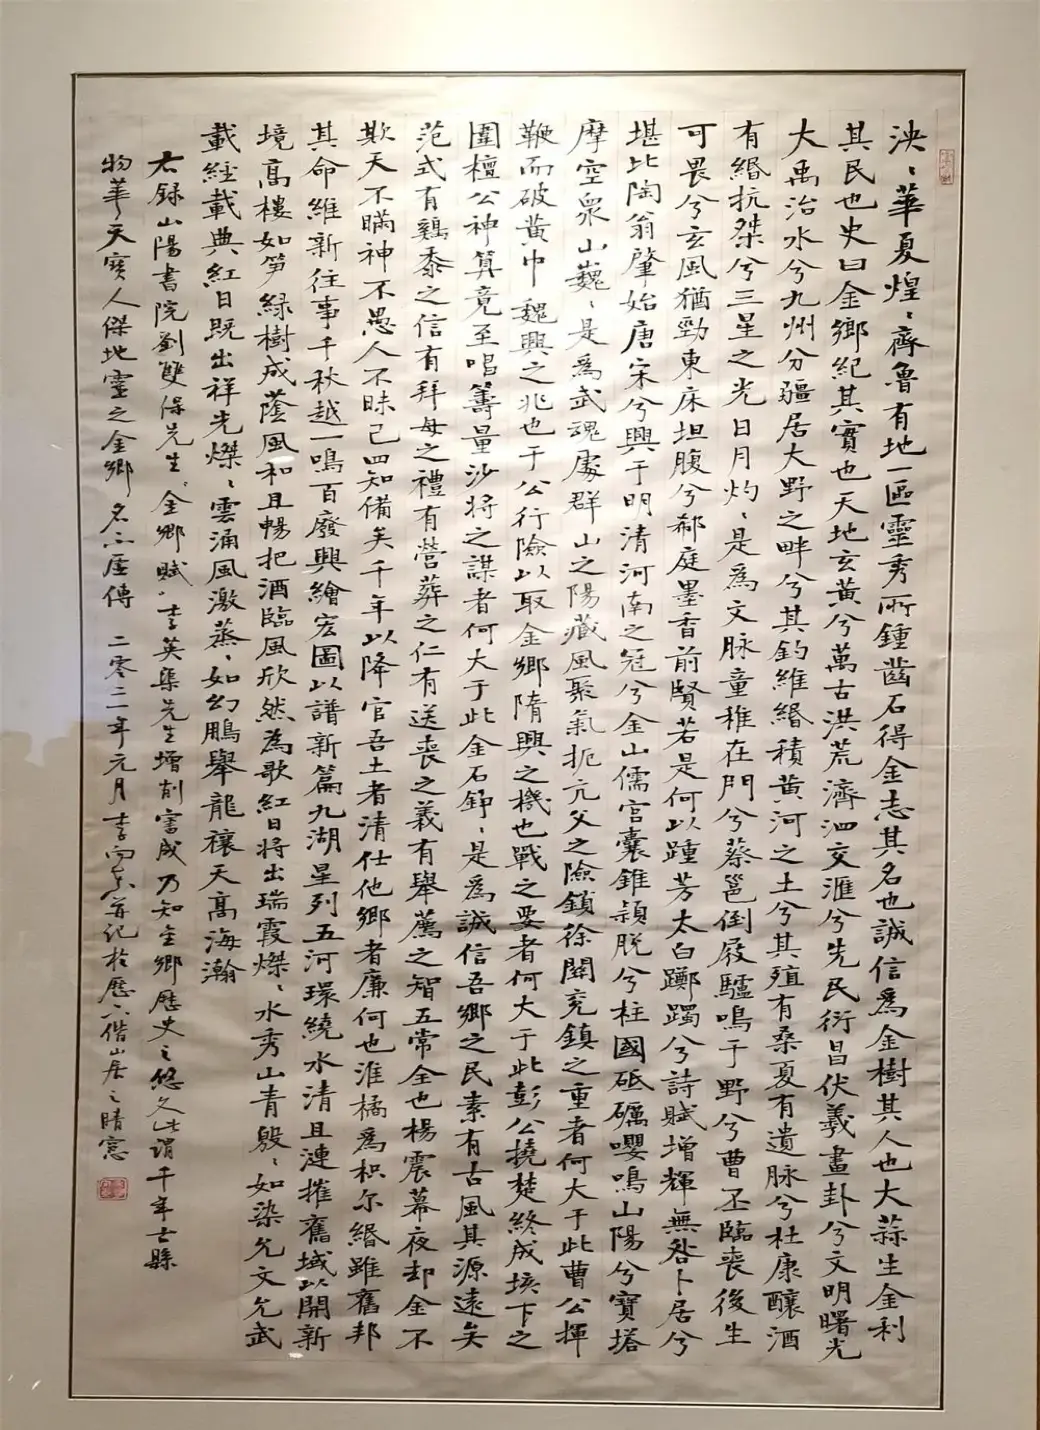 泱〻華夏煌〻齊魯有地一區靈秀所鍾凿石得金志其名也誠信爲金樹其人也大蒜生金利
其民也史曰金鄉紀其實也天地玄黃兮萬古洪荒濟泗交滙兮先民衍昌伏義畫卦兮文明曙光
大禹治水兮九州分疆居大野之畔兮其鈞維緡積黃河之土兮其殖有桑夏有遺脉兮杜康釀酒
有緡抗桀兮三星之光日月灼〻是爲文脉童稚在門兮蔡邕倒屐驢鳴于野兮曹丕臨喪後生
可畏兮玄風猶勁東床坦腹兮郗庭墨香前賢若是何以踵芳太白躑躅兮詩賦增輝無咎卜居兮
堪比陶翁肇始唐宋兮興于明清河南之冠兮金山儒宮囊錐穎脱兮柱國砥礪嚶鳴山陽兮寶塔
摩空衆山巍〻是爲武魂處群山之陽藏風聚氣扼亢父之險鎖徐關兖鎮之重者何大于此曹公揮
鞭而破黃巾魏興之兆也于公行險以取金鄉隋興之機也戰之要者何大于此彭公撓楚終成垓下之
圍檀公神算竟至唱籌量沙將之謀者何大于此金石錚〻是爲誠信吾鄉之民素有古風其源遠矣
范式有鷄黍之信有拜母之禮有營葬之仁有送喪之義有舉薦之智五常全也楊震幕夜却金不
欺天不瞞神不愚人不昧己四知備矣千年以降官吾土者清仕他鄉者廉何也淮橘爲枳尔緡雖舊邦
其命維新往事千秋越一鳴百廢興繪宏圖以譜新篇九湖星列五河環繞水清且漣摧舊域以開新
境高樓如笋緑樹成蔭風和且暢把酒臨風欣然為歌紅日將出瑞霞燦〻水秀山青殷〻如染允文允武
載經載典紅日既出祥光燦〻雲涌風激蒸〻如幻鵬舉龍禳天高海瀚
右録山陽書院劉雙保先生金鄉賦李英集先生增削審成乃知金鄉歷史之悠久生謂千年古縣
物華天寶人傑地靈之金鄉名不虛傳 二零二一年元月李向東并记於歷下偕山居之晴窓